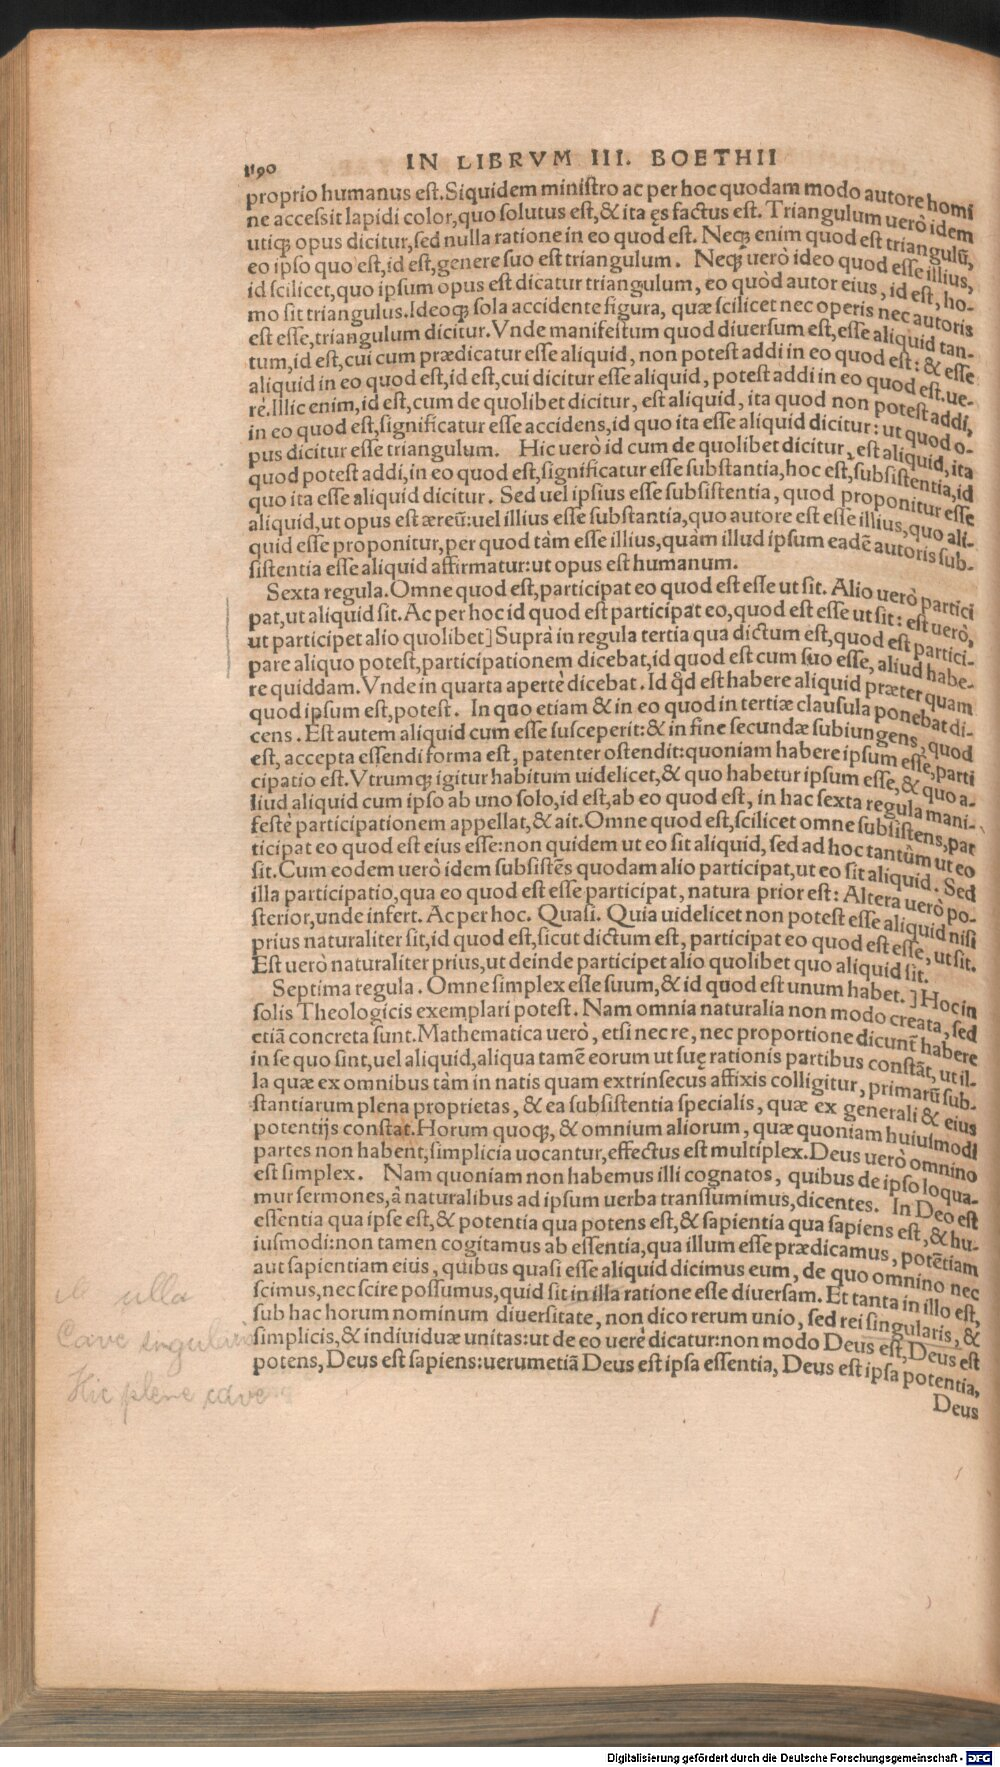 1190 IN LIBRVM III. BOETHII
proprio humanus eſt. Siquidem miniſtro ac per hoc quodam modo autore homi
ne acceſsit lapidi color, quo ſolutus eſt, & ita ęs factus eſt. Triangulum uerò idem
utiqꝫ opus dicitur, ſed nulla ratione in eo quod eſt. Neqꝫ enim quod eſt triangulũ,
eo ipſo quo eſt, id eſt, genere ſuo eſt triangulum. Neqꝫ uerò ideo quod eſſe illius,
id ſcilicet, quo ipſum opus eſt dicatur triangulum, eo quòd autor eius, id eſt, ho-
mo ſit triangulus. Ideoqꝫ ſola accidente figura, quæ ſcilicet nec operis nec autoris
eſt eſſe, triangulum dicitur. Vnde manifeſtum quod diuerſum eſt, eſſe aliquid tan-
tum, id eſt, cui cum prædicatur eſſe aliquid, non poteſt addi in eo quod eſt: & eſſe
aliquid in eo quod eſt, id eſt, cui dicitur eſſe aliquid, poteſt addi in eo quod eſt. ue-
rè. Illic enim, id eſt, cum de quolibet dicitur, eſt aliquid, ita quod non poteſt addi,
in eo quod eſt, ſignificatur eſſe accidens, id quo ita eſſe aliquid dicitur: ut quod o-
pus dicitur eſſe triangulum. Hic uerò id cum de quolibet dicitur, eſt aliquid, ita
quod poteſt addi, in eo quod eſt, ſignificatur eſſe ſubſtantia, hoc eſt, ſubſiſtentia, id
quo ita eſſe aliquid dicitur. Sed uel ipſius eſſe ſubſiſtentia, quod proponitur eſſe
aliquid, ut opus eſt æreũ: uel illius eſſe ſubſtantia, quo autore eſt eſſe illius, quo ali-
quid eſſe proponitur, per quod tàm eſſe illius, quàm illud ipſum eadẽ autoris ſub-
ſiſtentia eſſe aliquid affirmatur: ut opus eſt humanum.
Sexta regula. Omne quod eſt, participat eo quod eſt eſſe ut ſit. Alio uerò partici
pat, ut aliquid ſit. Ac per hoc id quod eſt participat eo, quod eſt eſſe ut ſit: eſt uerò,
ut participet alio quolibet] Suprà in regula tertia qua dictum eſt, quod eſt partici-
pare aliquo poteſt, participationem dicebat, id quod eſt cum ſuo eſſe, aliud habe-
re quiddam. Vnde in quarta apertè dicebat. Id qd̃ eſt habere aliquid præter quam
quod ipſum eſt, poteſt. In quo etiam & in eo quod in tertiæ clauſula ponebat di-
cens. Eſt autem aliquid cum eſſe ſuſceperit: & in fine ſecundæ ſubiungens, quod
eſt, accepta eſſendi forma eſt, patenter oſtendit: quoniam habere ipſum eſſe, parti
cipatio eſt. Vtrumqꝫ igitur habitum uidelicet, & quo habetur ipſum eſſe, & quo a-
liud aliquid cum ipſo ab uno ſolo, id eſt, ab eo quod eſt, in hac ſexta regula mani-
feſtè participationem appellat, & ait. Omne quod eſt, ſcilicet omne ſubſiſtens, par
ticipat eo quod eſt eius eſſe: non quidem ut eo ſit aliquid, ſed ad hoc tantùm ut eo
ſit. Cum eodem uerò idem ſubſiſtẽs quodam alio participat, ut eo ſit aliquid. Sed
illa participatio, qua eo quod eſt eſſe participat, natura prior eſt: Altera uerò po-
ſterior, unde infert. Ac per hoc. Quaſi. Quia uidelicet non poteſt eſſe aliquid niſi
prius naturaliter ſit, id quod eſt, ſicut dictum eſt, participat eo quod eſt eſſe, ut ſit.
Eſt uerò naturaliter prius, ut deinde participet alio quolibet quo aliquid ſit.
Septima regula. Omne ſimplex eſſe ſuum, & id quod eſt unum habet.] Hoc in
ſolis Theologicis exemplari poteſt. Nam omnia naturalia non modo creata, ſed
etiã concreta ſunt. Mathematica uerò, etſi nec re, nec proportione dicunt̃ habere
in ſe quo ſint, uel aliquid, aliqua tamẽ eorum ut ſuę rationis partibus conſtãt, ut il-
la quæ ex omnibus tàm in natis quam extrinſecus affixis colligitur, primarũ ſub-
ſtantiarum plena proprietas, & ea ſubſiſtentia ſpecialis, quæ ex generali & eius
potentijs conſtat. Horum quoqꝫ, & omnium aliorum, quæ quoniam huiuſmodi
partes non habent, ſimplicia uocantur, effectus eſt multiplex. Deus uerò omnino
eſt ſimplex. Nam quoniam non habemus illi cognatos, quibus de ipſo loqua-
mur ſermones, à naturalibus ad ipſum uerba tranſſumimus, dicentes. In Deo eſt
eſſentia qua ipſe eſt, & potentia qua potens eſt, & ſapientia qua ſapiens eſt, & hu-
iuſmodi: non tamen cogitamus ab eſſentia, qua illum eſſe prædicamus, potẽtiam
aut ſapientiam eius, quibus quaſi eſſe aliquid dicimus eum, de quo omnino nec
ſcimus, nec ſcire poſſumus, quid ſit in illa ratione eſſe diuerſam. Et tanta in illo eſt,
ſub hac horum nominum diuerſitate, non dico rerum unio, ſed rei ſingularis, &
ſimplicis, & indiuiduæ unitas: ut de eo uerè dicatur: non modo Deus eſt, Deus eſt
potens, Deus eſt ſapiens: uerumetiã Deus eſt ipſa eſſentia, Deus eſt ipſa potentia,
Deus
ulla
Cave singularis
Hic plene cave
Digitalisierung gefördert durch die Deutsche Forschungsgemeinschaft - DFG